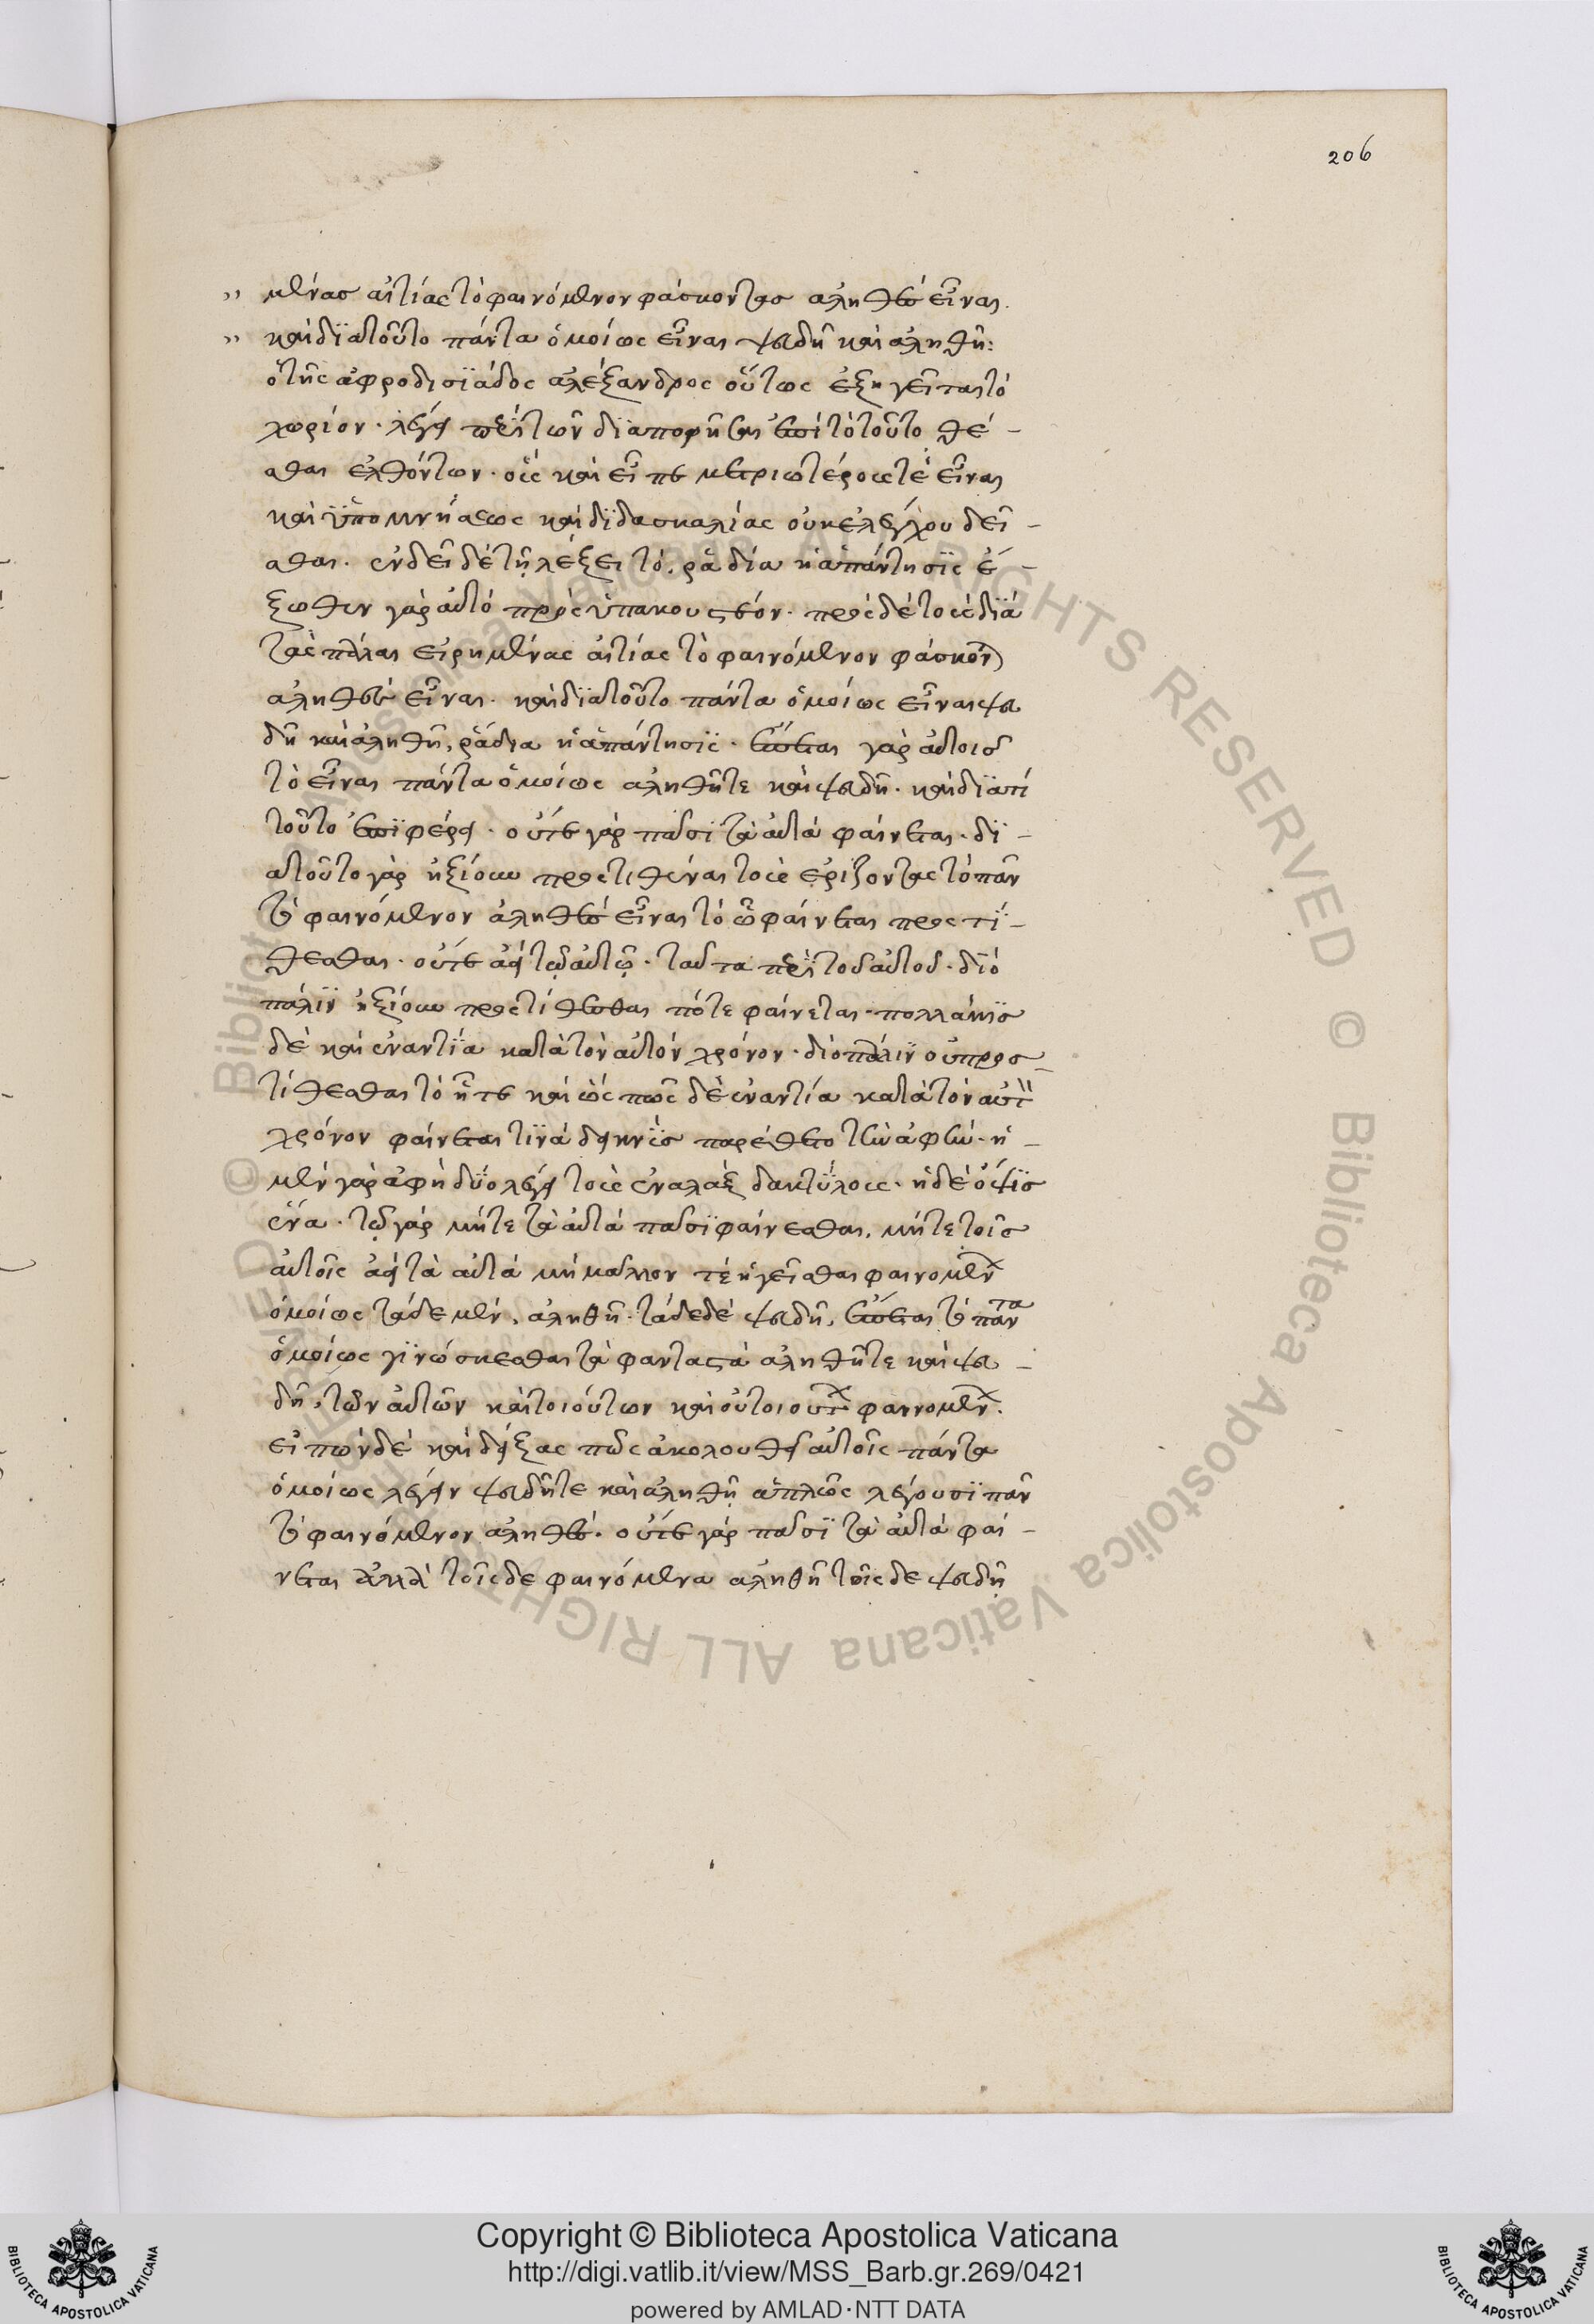 206
" μένας αἰτίας τὸ φαινόμενον φάσκοντας ἀληθὲς εἶναι.
" καὶ διατοῦτο πάντα ὁμοίως εἶναι ψευδῆ καὶ ἀληθῆ:
ὁ τῆς ἀφροδισϊάδος ἀλέξανδρος οὕτως ἐξηγεῖται τὸ
χωρίον· λέγει περὶ τῶν δϊαπορῆσαι ἐπὶ τὸ τοῦτο θέ-
σθαι ἐλθόντων· οὓς καὶ εἶπε μετριωτέρους τὲ εἶναι
καὶ ὑπομνήσεως καὶ δϊδασκαλίας οὐκ ἐλέγχου δεῖ-
σθαι. ἐνδεῖ δὲ τῇ λέξει τὸ, ῥᾳδία ἡ ἀπάντησϊς ἔ-
ξωθεν γὰρ αὐτὸ προσϋπακουστέον· πρὸς δὲ τοὺς δϊὰ
τὰς πάλαι εἰρημένας αἰτίας τὸ φαινόμενον φάσκοντ
ἀληθὲς εἶναι. καὶ δϊατοῦτο πάντα ὁμοίως εἶναι ψευ
δῆ καὶ ἀληθῆ, ῥάδια ἡ ἀπάντησϊς· ἕπεται γὰρ αὐτοῖς
τὸ εἶναι πάντα ὁμοίως ἀληθῆ τε καὶ ψευδῆ. καὶ δϊατί
τοῦτο ἐπϊφέρει· οὔτε γὰρ πᾶσϊ τὰ αὐτὰ φαίνεται. δϊ-
ατοῦτο γὰρ ἠξίου προστιθέναι τοὺς ἐρίζοντας τὸ πᾶν
τὸ φαινόμενον ἀληθὲς εἶναι τὸ ᾧ φαίνεται προστί-
θεσθαι. οὔτε ἀεὶ τῷ αὐτῷ. ταῦτα περὶ τοῦ αὐτοῦ. δϊὸ
πάλϊν ἠξίου προστίθεσθαι πότε φαίνεται. πολλάκϊς
δὲ καὶ ἐναντία κατὰ τὸν αὐτὸν χρόνον. δϊὸ πάλϊν οὐ προσ-
τίθεσθαι τὸ ἧ τε καὶ ὡς πῶς δὲ ἐναντία κατὰ τὸν αὐτὸν
χρόνον φαίνεται τϊνὰ δεικνὺς παρέθετο τὴν ἁφήν. ἡ-
μὲν γὰρ ἁφὴ δύο λέγει τοὺς ἐναλὰξ δακτύλους. ἡ δὲ ὄψϊς
ἕνα. τῷ γὰρ μήτε τὰ αὐτὰ πᾶσϊ φαίνεσθαι, μήτε τοῖς
αὐτοῖς ἀεὶ τὰ αὐτὰ μὴ μᾶλλον τὲ ἡγεῖσθαι φαινομένων
ὁμοίως τάδε μὲν, ἀληθῆ. τάδε δὲ ψευδῆ, ἕπεται τὸ πάντα
ὁμοίως γϊνώσκεσθαι τὰ φανταστὰ ἀληθῆ τε καὶ ψευ-
δῆ, τῶν αὐτῶν καὶ τοιούτων καὶ οὐ τοιούτων φαινομένων.
εἰπὼν δὲ καὶ δείξας πῶς ἀκολουθεῖ αὐτοῖς πάντα
ὁμοίως λέγειν ψευδῆ τε καὶ ἀληθῆ ἁπλῶς λέγουσϊ πᾶν
τὸ φαινόμενον ἀληθές. οὔτε γὰρ πᾶσϊ τὰ αὐτὰ φαί-
νεται ἀλλὰ τοῖς δε φαινόμενα ἀληθῆ τοῖς δε ψευδῆ
Copyright © Biblioteca Apostolica Vaticana
http://digi.vatlib.it/view/MSS_Barb.gr.269/0421
powered by AMLAD·NTT DATA
BIBLIOTECA APOSTOLICA VATICANA
BIBLIOTECA APOSTOLICA VATICANA